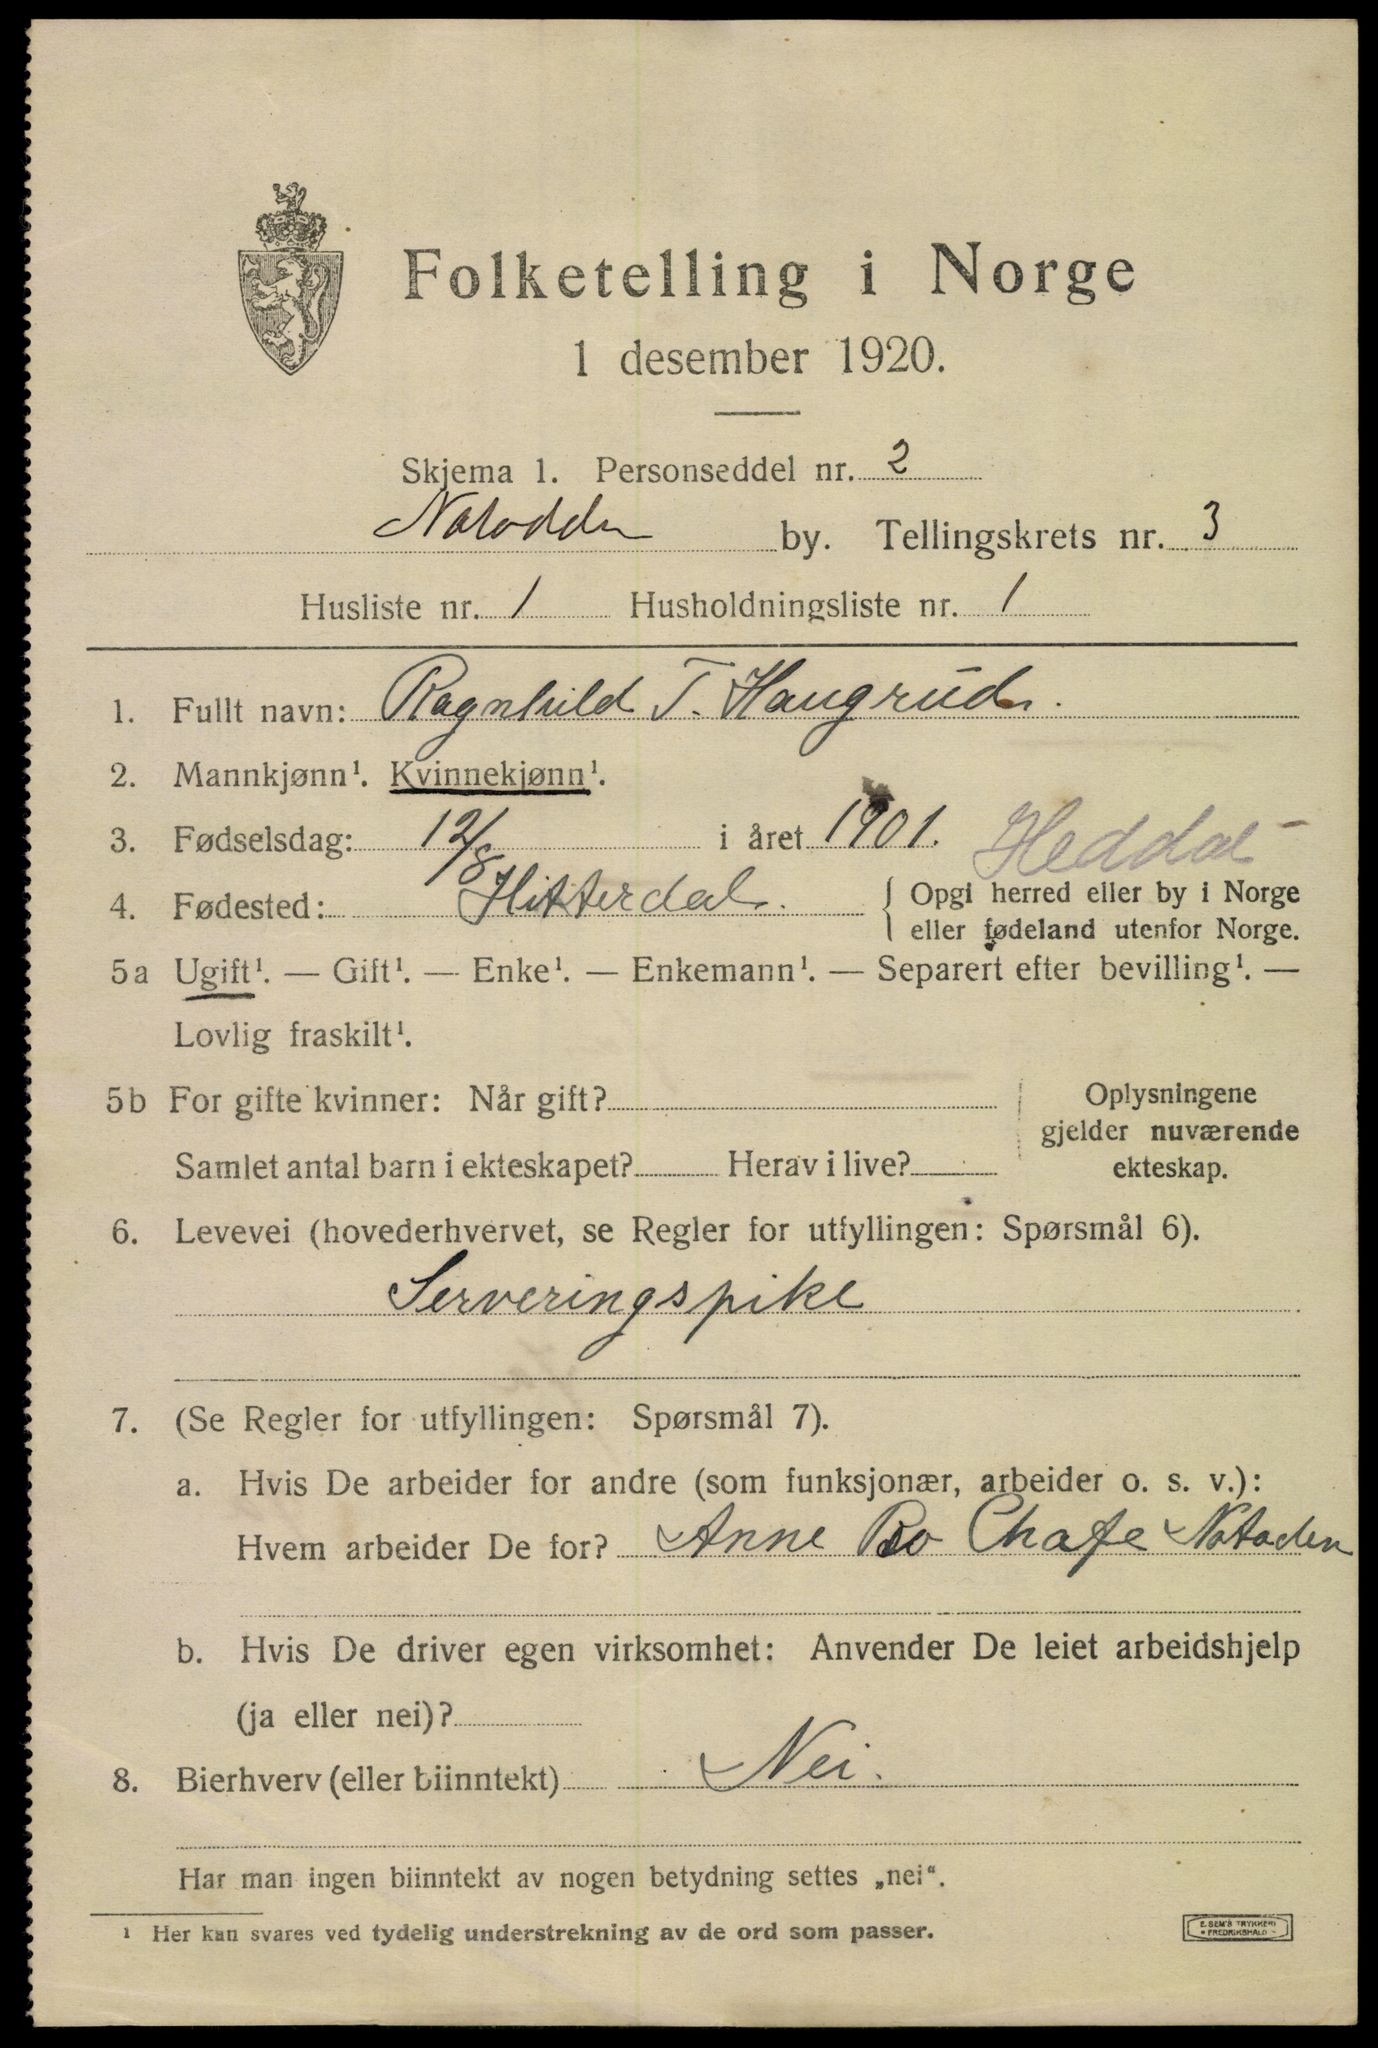 Folketelling i Norge
1 desember 1920.
Skjema 1. Personseddel nr. 2
Notodden by. Tellingskrets nr. 3
Husliste nr. 1 Husholdningsliste nr. 1
1. Fullt navn: Ragnhild T. Haugrud.
2. Mannkjønn¹. Kvinnekjønn¹.
3. Fødselsdag: 12/8 i året 1901. Heddal
4. Fødested: Hitterdal. { Opgi herred eller by i Norge
eller fødeland utenfor Norge.
5a Ugift¹. — Gift¹. — Enke¹. — Enkemann¹. — Separert efter bevilling¹. —
Lovlig fraskilt¹.
5b For gifte kvinner: Når gift? Oplysningene
gjelder nuværende
Samlet antal barn i ekteskapet? Herav i live? ekteskap.
6. Levevei (hovederhvervet, se Regler for utfyllingen: Spørsmål 6).
Serveringspike
7. (Se Regler for utfyllingen: Spørsmål 7).
a. Hvis De arbeider for andre (som funksjonær, arbeider o. s. v.):
Hvem arbeider De for? Anne Bo Chafe Notoden
b. Hvis De driver egen virksomhet: Anvender De leiet arbeidshjelp
(ja eller nei)?
8. Bierhverv (eller biinntekt) Nei.
Har man ingen biinntekt av nogen betydning settes „nei“.
¹ Her kan svares ved tydelig understrekning av de ord som passer.
E. SEM'S TRYKKERI
FREDRIKSHALD